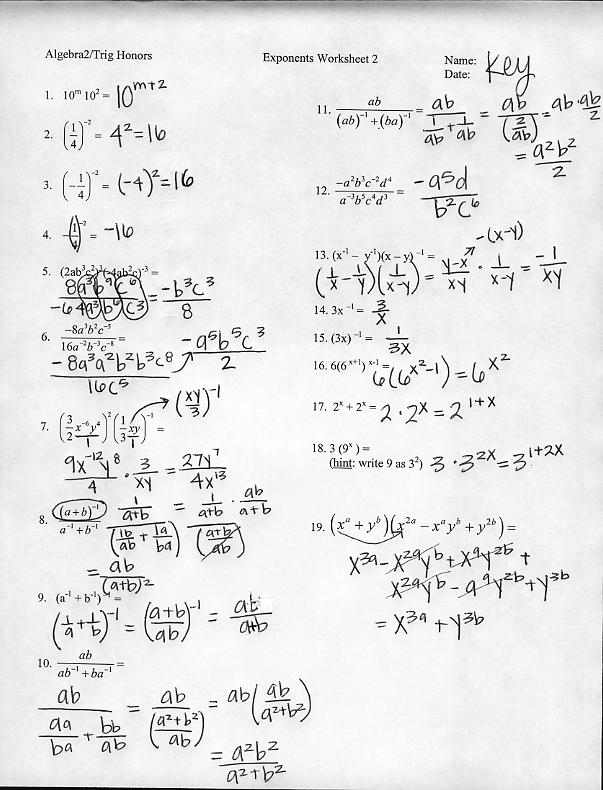 Algebra2/Trig Honors
Exponents Worksheet 2
Name: Key
Date:
1. 10ᵐ 10² = 10ᵐ⁺²
2. (1/4)⁻² = 4² = 16
3. (-1/4)⁻² = (-4)² = 16
4. -(1/4)⁻² = -16
5. (2ab³c²)³(-4ab²c)⁻³ =
8a³b⁹c⁶ / -64a³b⁶c³ = -b³c³ / 8
6. -8a³b²c⁻⁵ / 16a⁻²b⁻³c⁻⁸ =
-8a³a²b²b³c⁸ / 16c⁵ → -a⁵b⁵c³ / 2
7. (3/2 x⁻⁶y⁴)² (1/3 xy)⁻¹ = → (xy/3)⁻¹
9x⁻¹²y⁸ / 4 · 3/xy = 27y⁷ / 4x¹³
8. (a+b)⁻¹ / a⁻¹ + b⁻¹ (1/a+b) / (1b/ab + 1a/ba) = 1/a+b · ab/a+b
(a+b/ab)
= ab / (a+b)²
9. (a⁻¹ + b⁻¹)⁻¹ =
(1/a + 1/b)⁻¹ = (a+b / ab)⁻¹ = ab / a+b
10. ab / ab⁻¹ + ba⁻¹ =
ab / (aa/ba + bb/ab) = ab / (a²+b² / ab) = ab(ab / a²+b²)
= a²b² / a²+b²
11. ab / (ab)⁻¹ + (ba)⁻¹ = ab / (1/ab + 1/ab) = ab / (2/ab) = ab · ab/2
= a²b² / 2
12. -a²b³c⁻²d⁴ / a⁻³b⁵c⁴d³ = -a⁵d / b²c⁶
13. (x⁻¹ - y⁻¹)(x – y)⁻¹ = -(x-y)
(1/x - 1/y)(1/x-y) = y-x / xy · 1/x-y = -1/xy
14. 3x⁻¹ = 3/x
15. (3x)⁻¹ = 1/3x
16. 6(6ˣ⁺¹)ˣ⁻¹ = 6(6ˣ²⁻¹) = 6ˣ²
17. 2ˣ + 2ˣ = 2 · 2ˣ = 2¹⁺ˣ
18. 3 (9ˣ) =
(hint: write 9 as 3²) 3 · 3²ˣ = 3¹⁺²ˣ
19. (xᵃ + yᵇ)(x²ᵃ - xᵃyᵇ + y²ᵇ) =
x³ᵃ - x²ᵃyᵇ + xᵃy²ᵇ +
x²ᵃyᵇ - aᵃy²ᵇ + y³ᵇ
= x³ᵃ + y³ᵇ